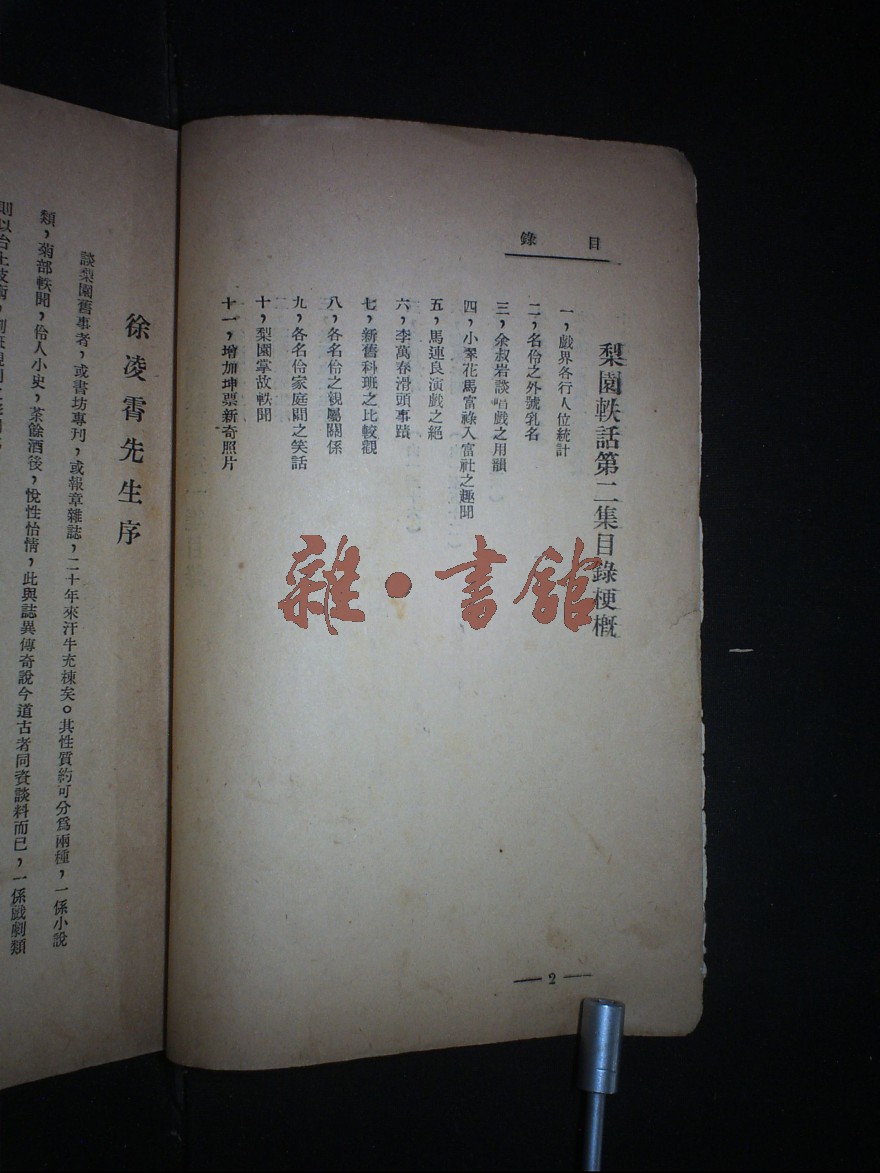 目錄
梨園軼話第二集目錄梗概
一，戲界各行人位統計
二，名伶之外號乳名
三，余叔岩談唱戲之用韻
四，小翠花馬富祿入富社之趣聞
五，馬連良演戲之絕
六，李萬春滑頭事蹟
七，新舊科班之比較觀
八，各名伶之親屬關係
九，各名伶家庭間之笑話
十，梨園掌故軼聞
十一，增加坤票新奇照片
2
雜·書館
徐凌霄先生序
談梨園舊事者，或書坊專刊，或報章雜誌，二十年來汗牛充棟矣。其性質約可分爲兩種，一係小說
類，菊部軼聞，伶人小史，茶餘酒後，悅性怡情，此與誌異傳奇說今道古者同資談料而已，一係戲劇類